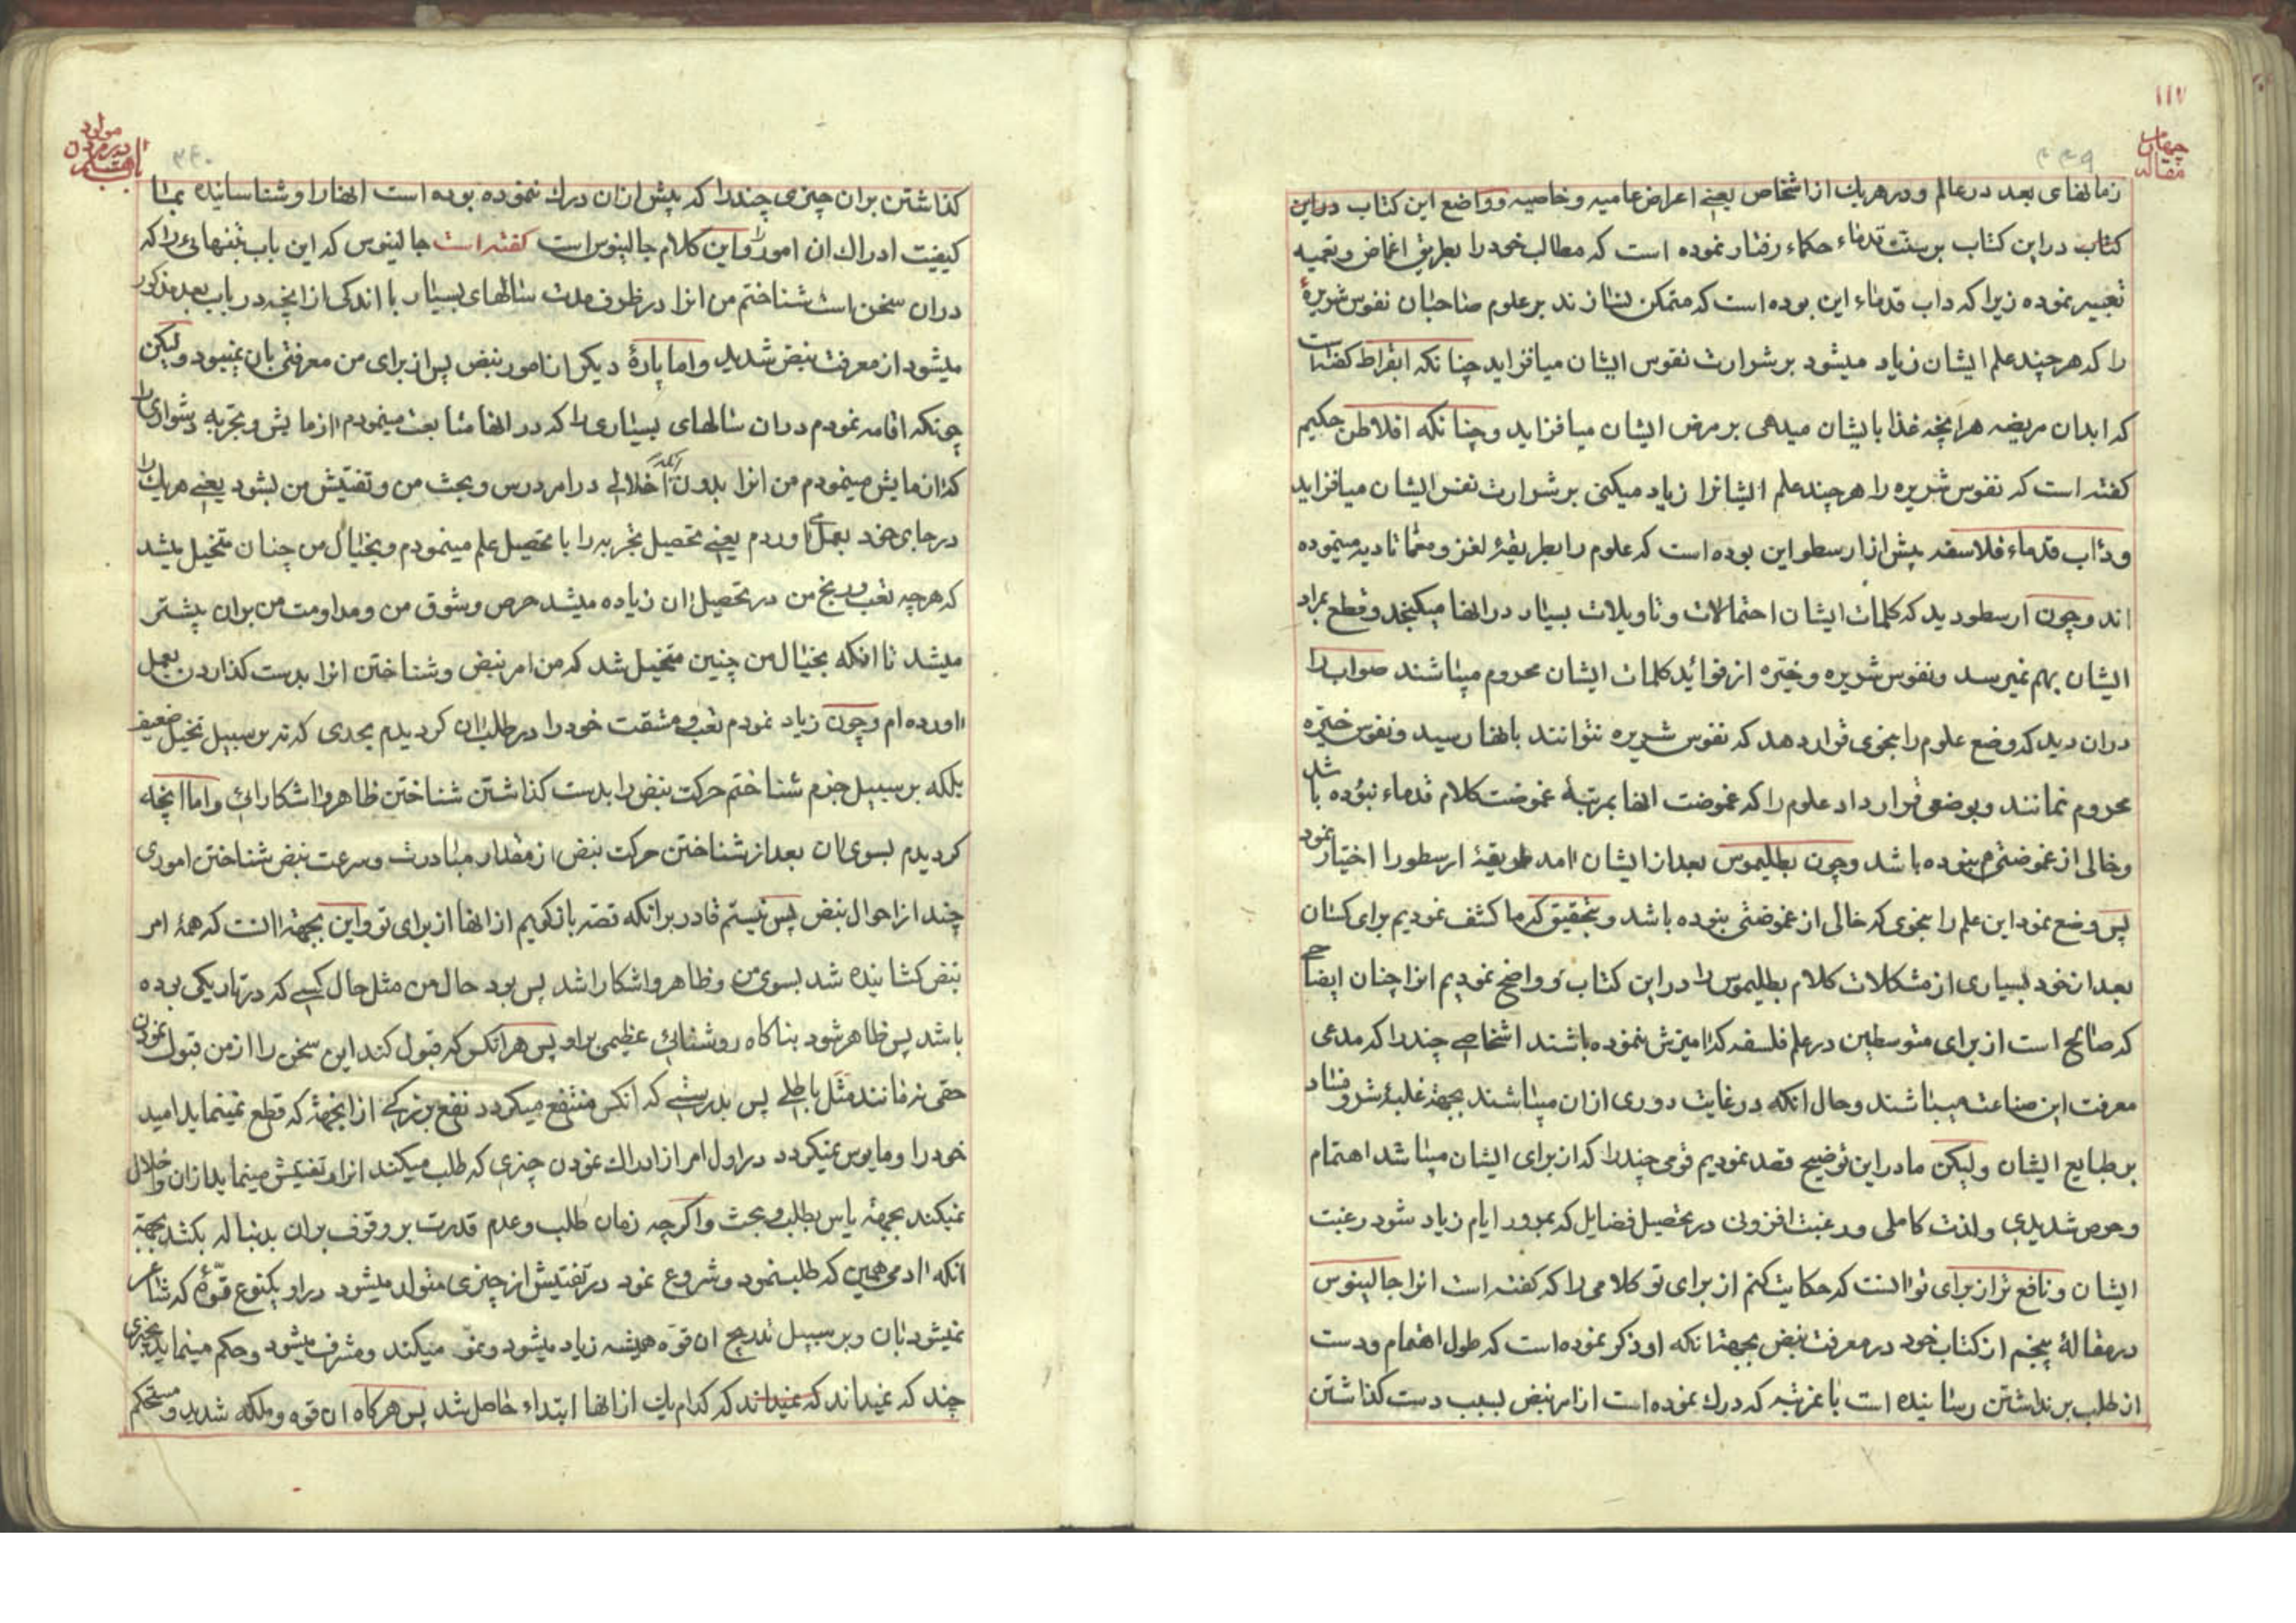 ۱۱۷
مقاله چهارم
۴۴۹
زمانهای بعد در عالم و در هریک از اشخاص یعنے اعراض عامیه و خاصیه و واضع این کتاب دراین
کتاب دراین کتاب بر سنت قدماء حکماء رفتار نموده است که مطالب خود را بطریق اغماض و تعمیه
تعبیر نموده زیرا که داب قدماء این بوده است که متمکن نسازند بر علوم صاحبان نفوس شریرهٔ
را که هرچند علم ایشان زیاد میشود بر شرارت نفوس ایشان میافزاید چنانکه ابقراط کفته است
که ابدان مریضه هرانچه غذا بایشان میدهی بر مرض ایشان میافزاید و چنانکه افلاطن حکیم
کفته است که نفوس شریره را هرچند علم ایشانرا زیاد میکنی بر شرارت نفس ایشان میافزاید
و داب قدماء فلاسفه پیش از ارسطو این بوده است که علوم را بطریقهٔ لغز و معما تادیه مینموده
اند و چون ارسطو دید که کلمات ایشان احتمالات و تاویلات بسیار در انها میکنجد و قطع بمراد
ایشان بهم نمیرسد و نفوس شریره و خیّره از فوائد کلمات ایشان محروم میباشند صواب را
دران دید که وضع علوم را بنحوی قرار دهد که نفوس شریره نتوانند بانها رسید و نفوس خیّره
محروم نمانند و بوضعی قرار داد علوم را که غموضت انها بمرتبهٔ غموضت کلام قدماء نبوده باشد
و خالی از غموضتی هم نبوده باشد و چون بطلیموس بعد از ایشان امد طریقهٔ ارسطو را اختیار نمود
پس وضع نمود این علم را بنحوی که خالی از غموضتی نبوده باشد و بتحقیق که ما کشف نمودیم برای کسان
بعد از خود بسیاری از مشکلات کلام بطلیموس را دراین کتاب و واضح نمودیم انرا چنان ایضاحی
که صالح است از برای متوسطین در علم فلسفه که امیزش نموده باشند اشخاصے چند را که مدعی
معرفت این صناعت میباشند و حال انکه در غایت دوری ازان میباشند بجهة غلبهٔ شر و فساد
بر طبایع ایشان ولیکن ما دراین توضیح قصد نمودیم قومی چند را که از برای ایشان میباشد اهتمام
و حرص شدیدی و لذت کاملی و رغبت افزونی در تحصیل فضایل که بمرور ایام زیاد شود رغبت
ایشان و نافع تر از برای تو انست که حکایت کنم از برای تو کلامی را که کفته است انرا جالینوس
در مقالهٔ پنجم از کتاب خود در معرفت نبض بجهة انکه او ذکر نموده است که طول اهتمام و دست
از طلب برنداشتن رسانیده است بانمرتبه که درك نموده است از امر نبض بسبب دست کذاشتن
۴۴۰
کذاشتن بران چیزی چند را که پیش ازان درك ننموده بوده است انها را و شناسانیده بما
کیفیت ادراك ان امور را و این کلام جالینوس است کفته است جالینوس که این باب نبضهائے را که
دران سخن است شناختم من انرا در ظرف مدت سالهای بسیار با اندکی از انچه در باب بعد مذکور
میشود از معرفت نبض شدید و اما پارهٔ دیکر از امور نبض پس از برای من معرفتی بان نمیبود ولیکن
چونکه اقامه نمودم دران سالهای بسیاری را که در انها متابعت مینمودم ازمایش و تجربه دشواری را
که ازمایش مینمودم من انرا بدون انکه اخلالی در امر درس و بحث من و تفتیش من بشود یعنے هریك را
در جای خود بعمل می اوردم یعنے تحصیل تجربه را با تحصیل علم مینمودم و بخیال من چنان متخیل میشد
که هرچه تعب و رنج من در تحصیل ان زیاده میشد حرص و شوق من و مداومت من بران بیشتر
میشد تا انکه بخیال من چنین متخیل شد که من امر نبض و شناختن انرا بدست کذاردن بعمل
اورده ام و چون زیاد نمودم تعب و مشقت خود را در طلب ان کردیدم بحدی که نه بر سبیل تخیل ضعیف
بلکه بر سبیل جزم شناختم حرکت نبض را بدست کذاشتن شناختن ظاهر و اشکارائے و اما انچه
کردیدم بسوی ان بعد از شناختن حرکت نبض از مقدار مبادرت و سرعت نبض شناختن اموری
چند از احوال نبض پس نیستم قادر برانکه قصه بازکویم از انها از برای تو و این بجهة انست که همهٔ امر
نبض کشانیده شد بسوی من و ظاهر و اشکارا شد پس بود حال من مثل حال کسے که در تاریکی بوده
باشد پس ظاهر شود بناکاه روشنائے عظیمی براو پس هرانکس که قبول کند این سخن را از من قبول نمودن
حقی نه مانند مثل باطلے پس بدرستے که انکس منتفع میکردد نفع بزرکے از انجهة که قطع نمینماید امید
خود را و مایوس نمیکردد در اول امر از ادراك نمودن چیزی که طلب میکند انرا و تفتیش مینماید ازان و اخلال
نمیکند بجهة یاس بطلب و بحث و اکرچه زمان طلب و عدم قدرت بر وقوف بران بدنباله بکشد بجهة
انکه ادمی همین که طلب نمود و شروع نمود در تفتیش از چیزی متولد میشود در او یکنوع قوّهٔ که شاعر
نمیشود بان و بر سبیل تدریج ان قوّه همیشه زیاد میشود و نموّ میکند و مشرف میشود و حکم مینماید بچیزی
چند که نمیداند که نمیداند که کدام یك از انها ابتداء حاصل شد پس هرکاه ان قوه و ملکه شدید و مستحکم